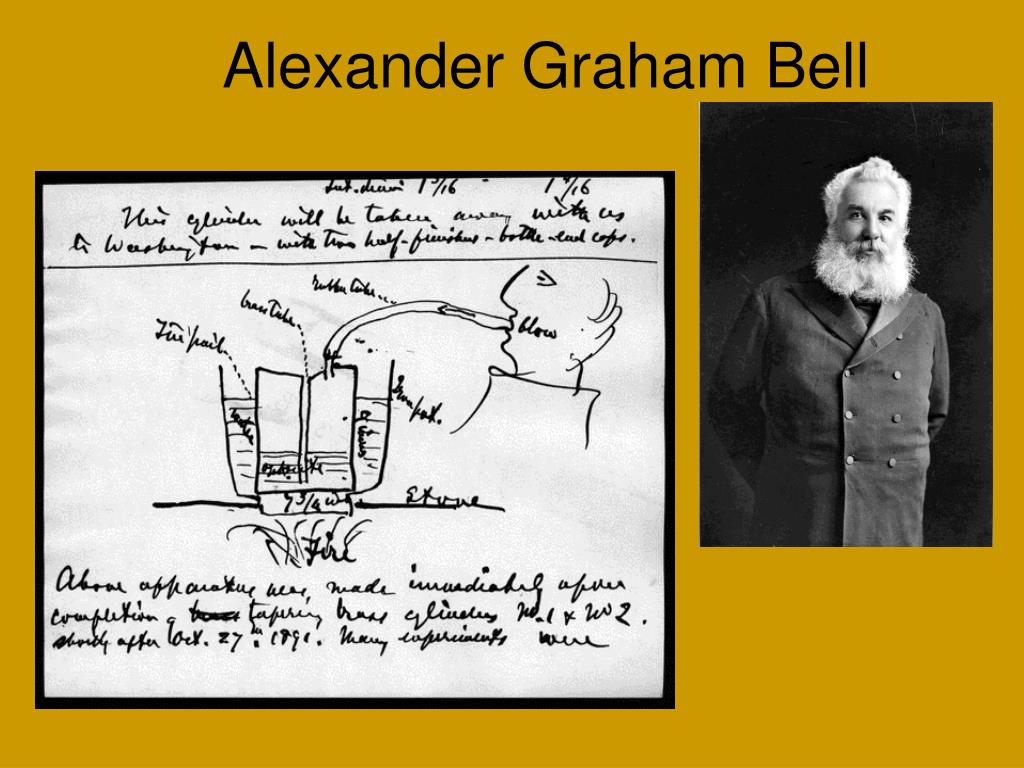 Alexander Graham Bell
1 3/16 "
This cylinder will be taken away with us
to Washington — with two half-finished - bottle-end caps.
rubber tube
brass tube
blow
water
7 3/4
Stone
Fire
Above apparatus was, made immediately upon
completion of tapering brass cylinders No. 1 & No 2.
shortly after Oct. 27th. 1891. Many experiments were